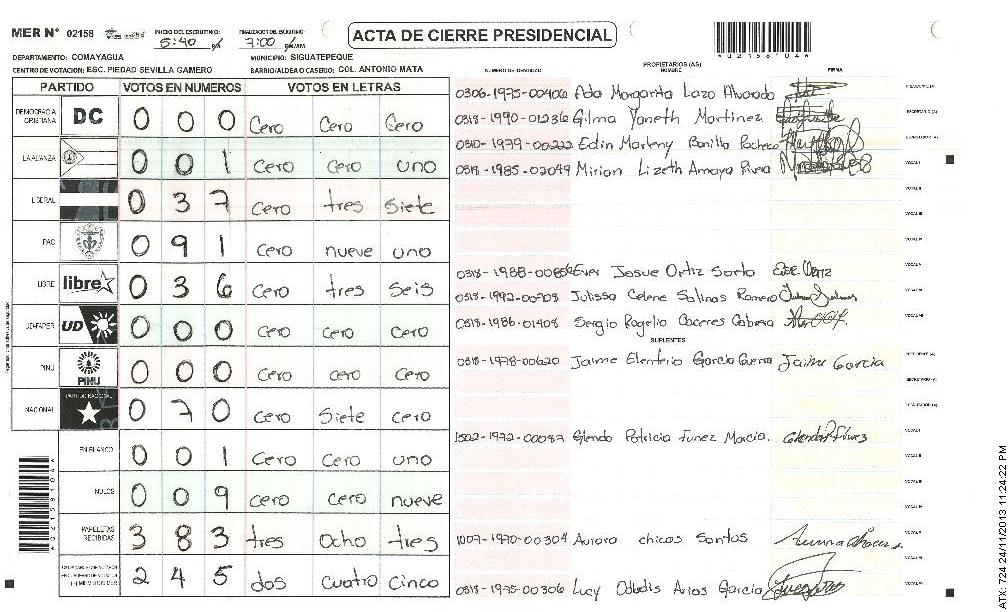 MER Nº 02158
INICIO DEL ESCRUTINIO: 5:40
FINALIZACION DEL ESCRUTINIO: 7:00
ACTA DE CIERRE PRESIDENCIAL
*02158104*
DEPARTAMENTO: COMAYAGUA
MUNICIPIO: SIGUATEPEQUE
CENTRO DE VOTACION: ESC. PIEDAD SEVILLA GAMERO
BARRIO/ALDEA O CASERIO: COL. ANTONIO MATA
PARTIDO VOTOS EN NUMEROS VOTOS EN LETRAS
DEMOCRACIA CRISTIANA DC 0 0 0 Cero Cero Cero
LA ALIANZA 0 0 1 Cero cero uno
LIBERAL 0 3 7 Cero tres Siete
PAC 0 9 1 Cero nueve uno
LIBRE libre 0 3 6 Cero tres Seis
UD-FAPER UD 0 0 0 Cero Cero Cero
PINU PINU 0 0 0 Cero cero Cero
NACIONAL PARTIDO NACIONAL 0 7 0 Cero Siete cero
EN BLANCO 0 0 1 Cero Cero uno
NULOS 0 0 9 cero cero nueve
PAPELETAS RECIBIDAS 3 8 3 tres Ocho tres
2 4 5 dos cuatro cinco
NUMERO DE IDENTIDAD PROPIETARIOS (AS) NOMBRE FIRMA
0306-1975-00406 Ada Margarita Lazo Alvarado PRESIDENTE (A)
0318-1990-01236 Gilma Yaneth Martinez SECRETARIO (A)
0310-1979-00222 Edin Marleny Bonilla Pacheco ESCRUTADOR (A)
0318-1985-02049 Mirian Lizeth Amaya Rivera VOCAL I
VOCAL II
VOCAL III
VOCAL IV
0318-1988-00856 Ever Josue Ortiz Sorto VOCAL V
0318-1992-00508 Julissa Celene Salinas Romero VOCAL VI
0318-1986-01408 Sergio Rogelio Caceres Cabrera VOCAL VII
SUPLENTES
0318-1978-00620 Jaime Elenterio Garcia Guerra Jaime Garcia PRESIDENTE (A)
SECRETARIO (A)
ESCRUTADOR (A)
1502-1972-00047 Glenda Patricia Funez Murcia. VOCAL I
VOCAL II
VOCAL III
VOCAL IV
1007-1970-00304 Aurora chicas Santos VOCAL V
VOCAL VI
0318-1975-00306 Lucy Odalis Arias Garcia VOCAL VII
*02158104*
ATX-724-24/11/2013 11:24:22 PM